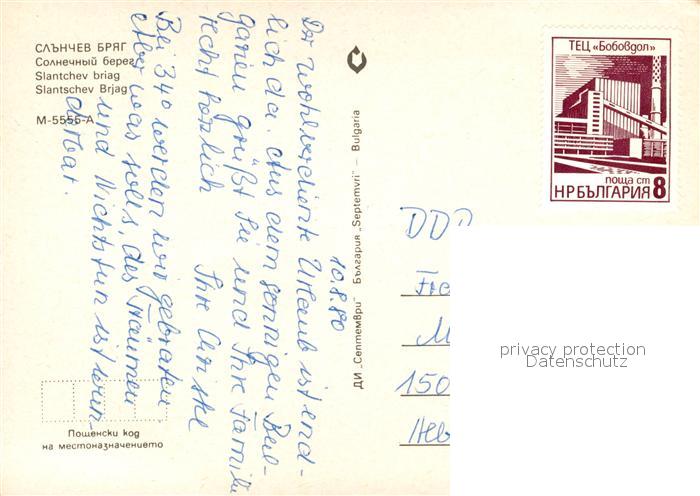 СЛЪНЧЕВ БРЯГ
Солнечный берег
Slantchev briag
Slantschev Brjag
M-5555-A
Der wohlverdiente Urlaub ist end-
lich da. Aus dem sonnigen Bul-
garien grüßt Sie und Ihre Familie
recht herzlich
Ihre
Bei 34° werden wir gebraten
Aber was solls, das Träumen
und Nichtstun ist wun-
derbar.
10.8.80
ДИ „Септември" България „Septemvri" — Bulgaria
ТЕЦ «Бобовдол»
поща ст 8
НР БЪЛГАРИЯ
DDR
M
150
privacy protection
Datenschutz
Пощенски код
на местоназначението